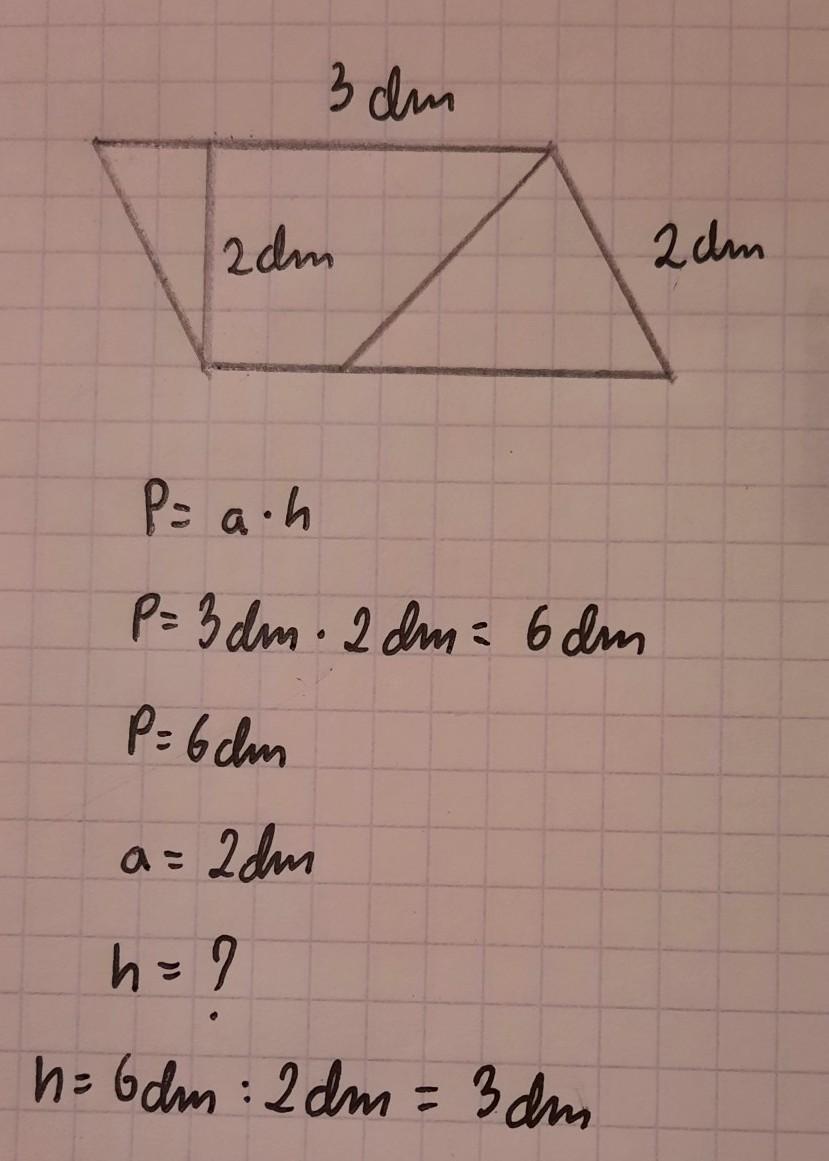 3 dm
2dm 2dm
P= a · h
P= 3dm · 2dm = 6dm
P= 6dm
a = 2dm
h = ?
h= 6dm : 2dm = 3dm